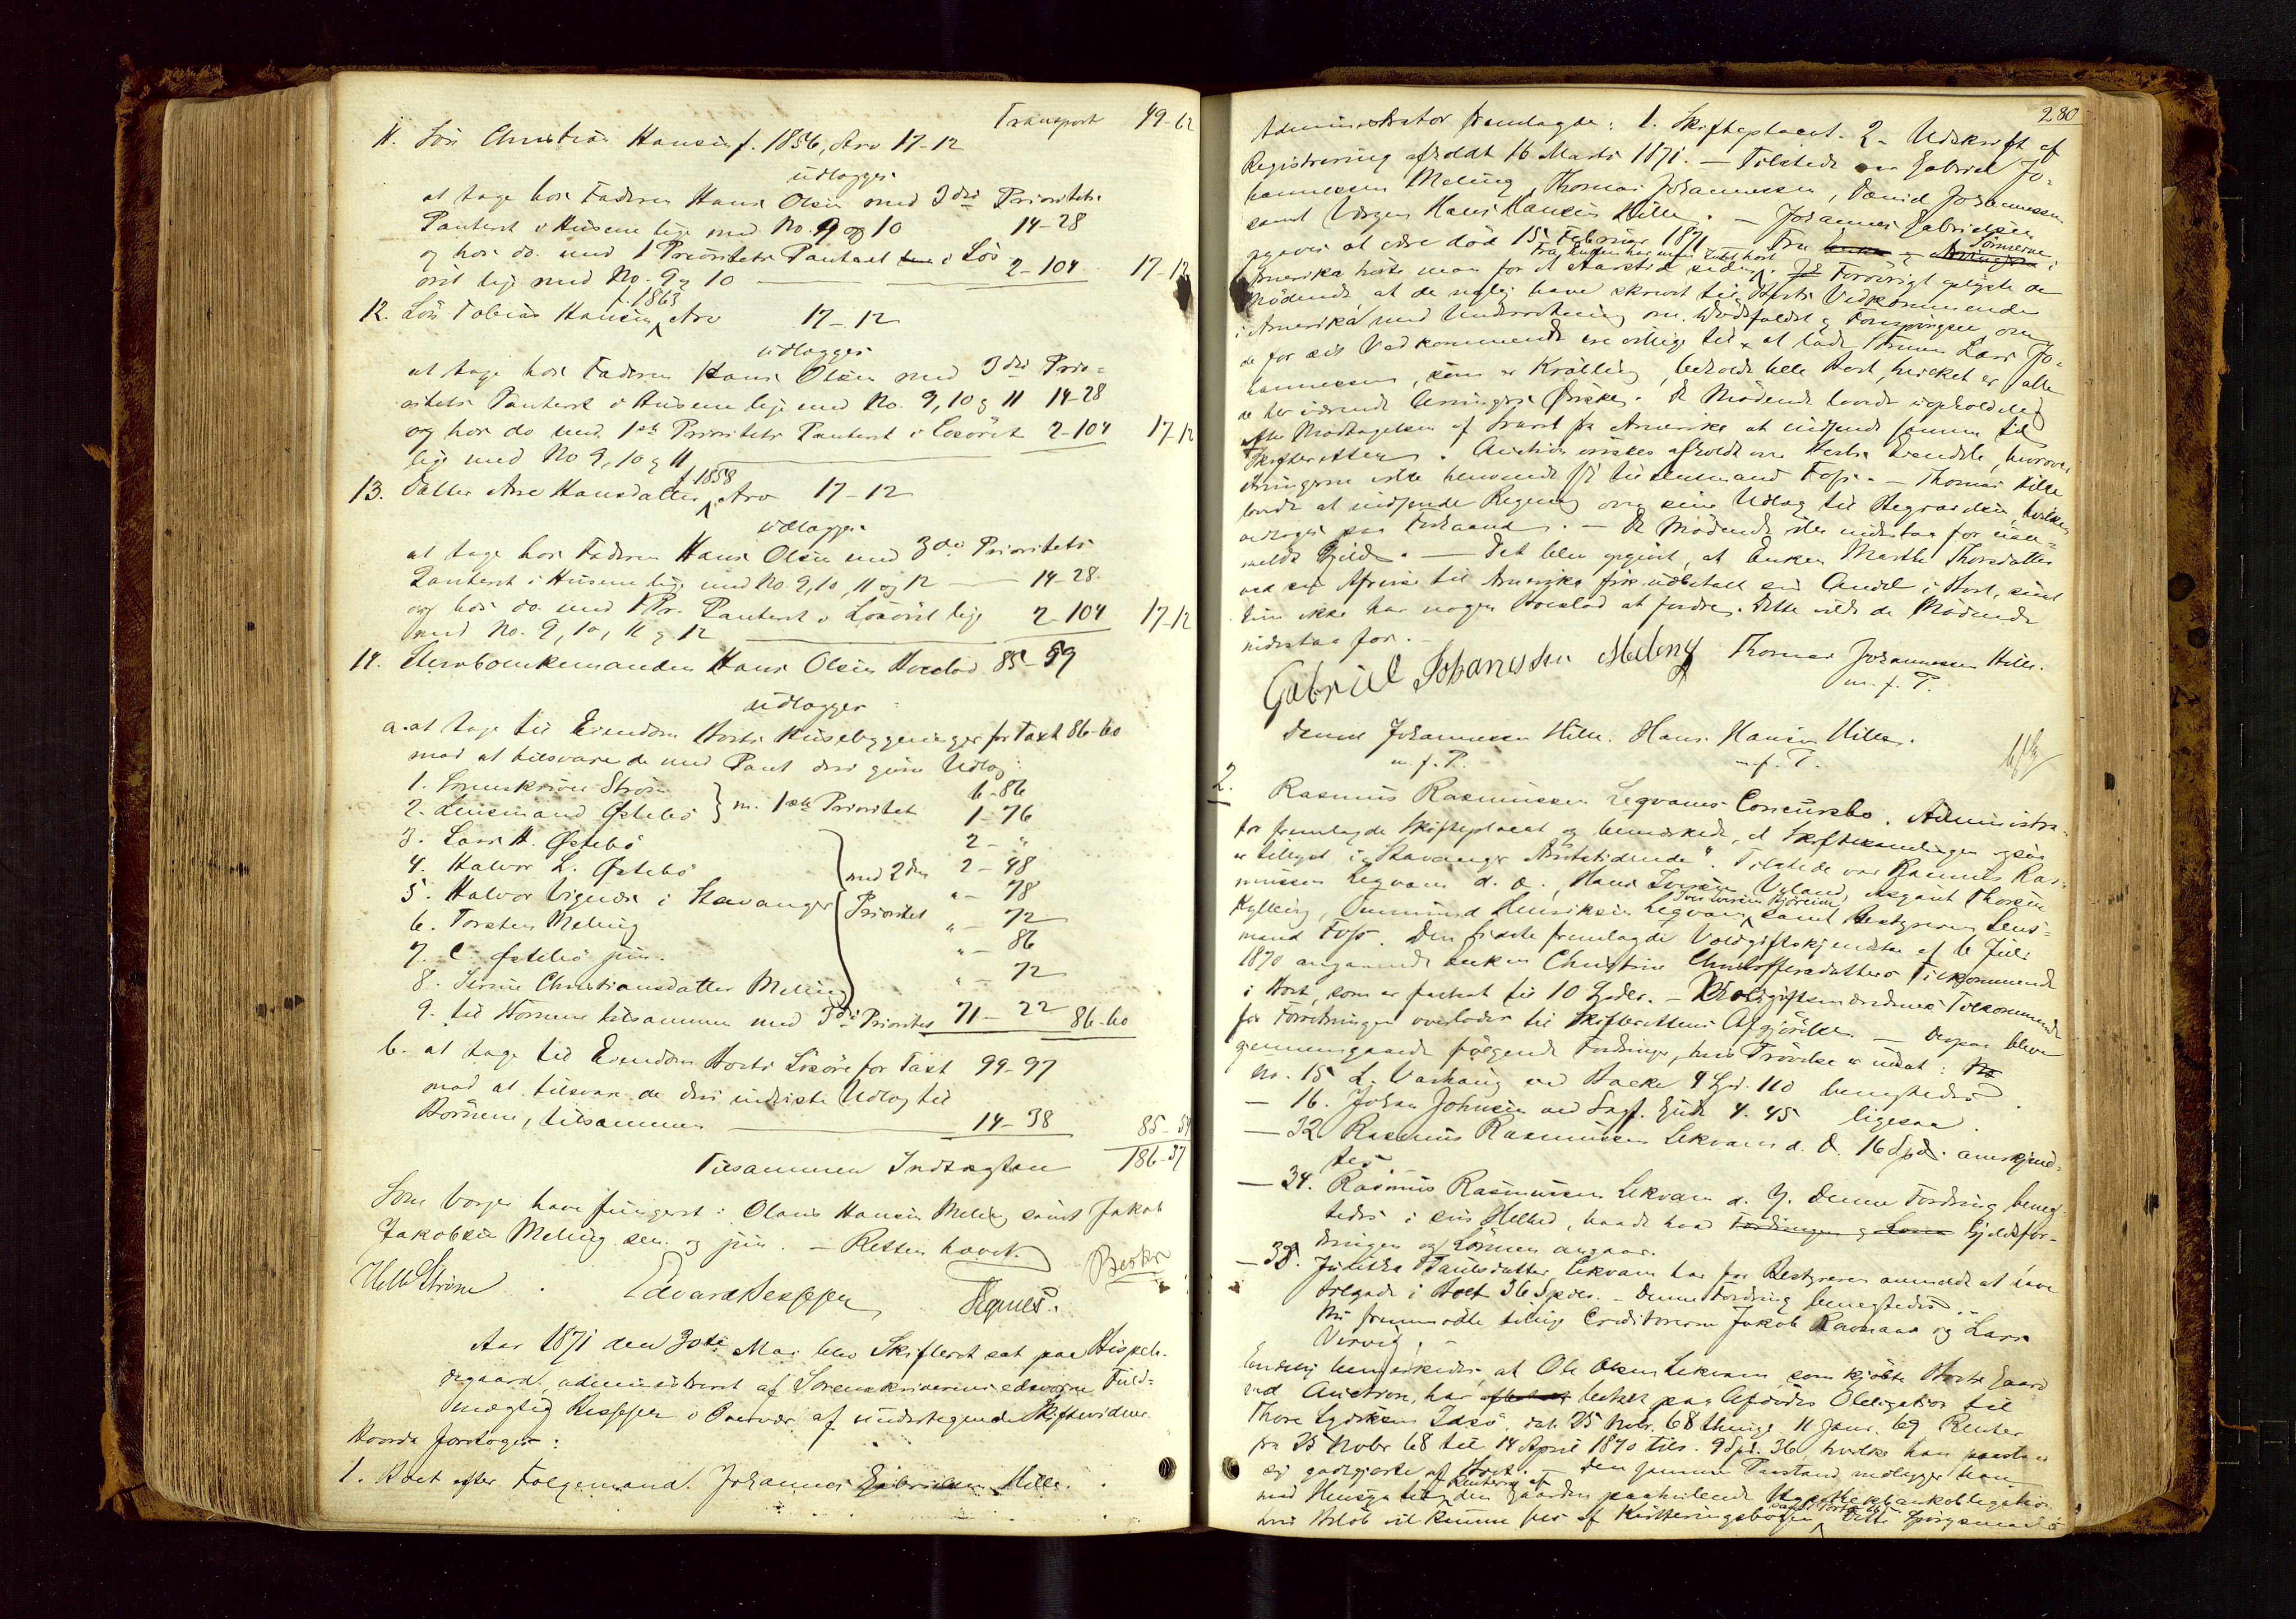 Transport 49-62
11. Søn Christian Hansen f. 1856, Arv 17-12
udlægges
at tage hos Faderen Hans Olsen med 3die Prioritets
Panteret i Husene lige med No. 9 og 10 14-28
og hos do. med 1 Prioritets Panteret i Løs
øret lige med No. 9 og 10 2-104 17-12
12. Søn Tobias Hansen f. 1863 Arv 17-12
udlægges
at tage hos Faderen Hans Olsen med 3die Prio=
ritets Panteret i Husene lige med No. 9, 10 og 11 14-28
og hos do med 1ste Prioritets Panteret i Løsøret 2-104 17-12
lige med No 9, 10 og 11
13. Datter Ane Hansdatter f. 1858 Arv 17-12
udlægges
at tage hos Faderen Hans Olsen med 3die Prioritets
Panteret i Husene lige med No. 9, 10, 11 og 12 14-28.
og hos do. med 1 Pr. Panteret i Løsøret lige 2-104 17-12
med No. 9, 10, 11 og 12
14. Sterboenkemanden Hans Olsen 85-59
udlægges
a. at tage til Eiendom Boets Husebygninger for Taxt 86-60
mod at tilsvare de med Pant deri gjorte Udlæg:
1. Sorenskriver Strøm 6-86
2. Lensmand Østebø } m. 1ste Prioritet 1-76
3. Lars H. Østebø 2-"
4. Halvor L. Østebø med 2den 2-48
5. Halvor Vignes i Stavanger Prioritet "-78
6. Torsten Meling "-72
7. C. Østebø jun. "-86
8. Serine Christiansdatter Meling "-72
9. til Børnene tilsammen med 3die Prioritet 71-22 86-60
b. at tage til Eiendom Boets Løsøre for Taxt 99-97
mod at tilsvare de deri indviste Udlæg til
Børnene, tilsammen 14-38 85-59
Tilsammen Indtægten 186-37
Som Værger have fungeret: Olaus Hansen Meling samt Jakob
Jakobsen Meling sen. og jun. - Retten hævet.
Strøm. Edvard Jespersen
Aar 1871 den 30te Mai blev Skifteret sat paa Hispele-
degaard, administreret af Sorenskriverens edsvorne Fuld=
mægtig Jespersen i Overvær af undertegnede Skiftevidner.
Hvorda foretoges:
1. Boet efter Følgemand Johannes Gabrielsen Hille.
280
Administrator fremlagde: 1. Skifteplacat. 2. Udskrift af
Registrering afholdt 16 Marts 1871. - Tilstede var Gabriel Jo=
hannessen Meling, Thomas Johannessen, Daniel Johannessen
samt Værgen Hans Hansen Hille. - Johannes Gabrielsen
opgaves at være død 15 Februar 1871. Fra Sønnerne i
Fra Enken har man intet hørt
Amerika hørte man for et Aarstid siden. Forøvrigt oplyste de
Mødende, at de nylig have skrevet til Boets Vedkommende
i Amerika med Underretning om Dødsfaldet og Forespørgsel om
de for sit Vedkommende ere villige til at lade Sønnen Lars Jo=
hannessen, som er Krøbling, beholde hele Boet, hvilket er alle
de her værende Arvingers Ønske. De Mødende lovede uopholdelig
efter Modtagelsen af Svaret fra Amerika at indsende samme til
Skifteretten. Auction ønskes afholdt over Boets Eiendele, hvorom
Arvingerne ville henvende sig til Lensmand Foss. - Thomas Hille
lovede at indsende Regning over sine Udlæg til Begravelsen, hvilken
vedtoges paa Forhaand. - De Mødende ville indestaa for uan=
meldt Gjæld. - Det blev opgivet, at Enken Marthe Thorsdatter
ved sin Afreise til Amerika fik udbetalt sin Andel i Boet, saa at
hun ikke har nogen Boeslod at fordre. Dette ville de Mødende
indestaa for. -
Gabriel Johanessen Meling Thomas Johannessen Hille.
m. f. P.
Daniel Johannessen Hille. Hans Hansen Hille.
m. f. P. m. f. P.
2. Rasmus Rasmussen Legvams Concursbo. Administra=
tor fremlagde Skifteplacat og bemærkede, at Skiftesamlingen ogsaa
er tillyst i "Stavanger Amtstidende". Tilstede var Rasmus Ras=
mussen Legvam d. æ., Hans Iversen Veland, Asgaut Thorsen
Iver Iversen Bjøreim
Kylling, Ommund Henriksen Legvam samt Bestyreren Lens=
mand Foss. Den sidste fremlagde Voldgiftskjendelse af 6 Juli
1870 angaaende Enken Christine Christoffersdatters Tilkommende
i Boet, som er fastsat til 10 Spdlr. - Voldgiftsmændenes Tilkommende
for Forretningen overlodes til Skifterettens Afgjørelse. - Derpaa bleve
gjennemgaaede følgende Fordringer, hvis Prøvelse er udsat:
No. 15 L. Varhaug ved Hacke 4 Spd. 110 benegtedes.
- 16. Johan Johnsen ved Sagf. Gude 4. 45 ligesaa.
- 32. Rasmus Rasmussen Lekvam d. Æ. 16 Spd. anerkjend=
tes
- 34. Rasmus Rasmussen Lekvam d. Y. Denne Fordring beneg=
tedes i sin Helhed, baade hvad Gjældsfor=
dringen og Lønnen angaar.
- 38. Paulsdatter Lekvam har for Bestyreren anmeldt at have
tilgode i Boet 36 Spdlr. - Denne Fordring benegtedes. -
Nu fremmødte tillige Creditorerne Jakob Ravnaas og Lars
Vervig. -
Endelig bemærkedes, at Ole Olsen Lekvam, som kjøbte Boets Gaard
ved Auction, har betalt paa Afdødes Obligation til
Thore Lydiksen Idsø, dat. 25 Novbr. 68 thingl. 11 Janr. 69 Renter
fra 25 Novbr 68 til 14 April 1870 tils. 9 Spd. 36 hvilke han paastaar
sig godtgjorte af Boet. - Den samme Paastand nedlægger han
med Hensyn til Renterne af den Gaarden paahvilende Hypothekbankobligation
hvis Beløb vil kunne sees af Kvitteringsbogen samt Porto. Dette Spørgsmaal